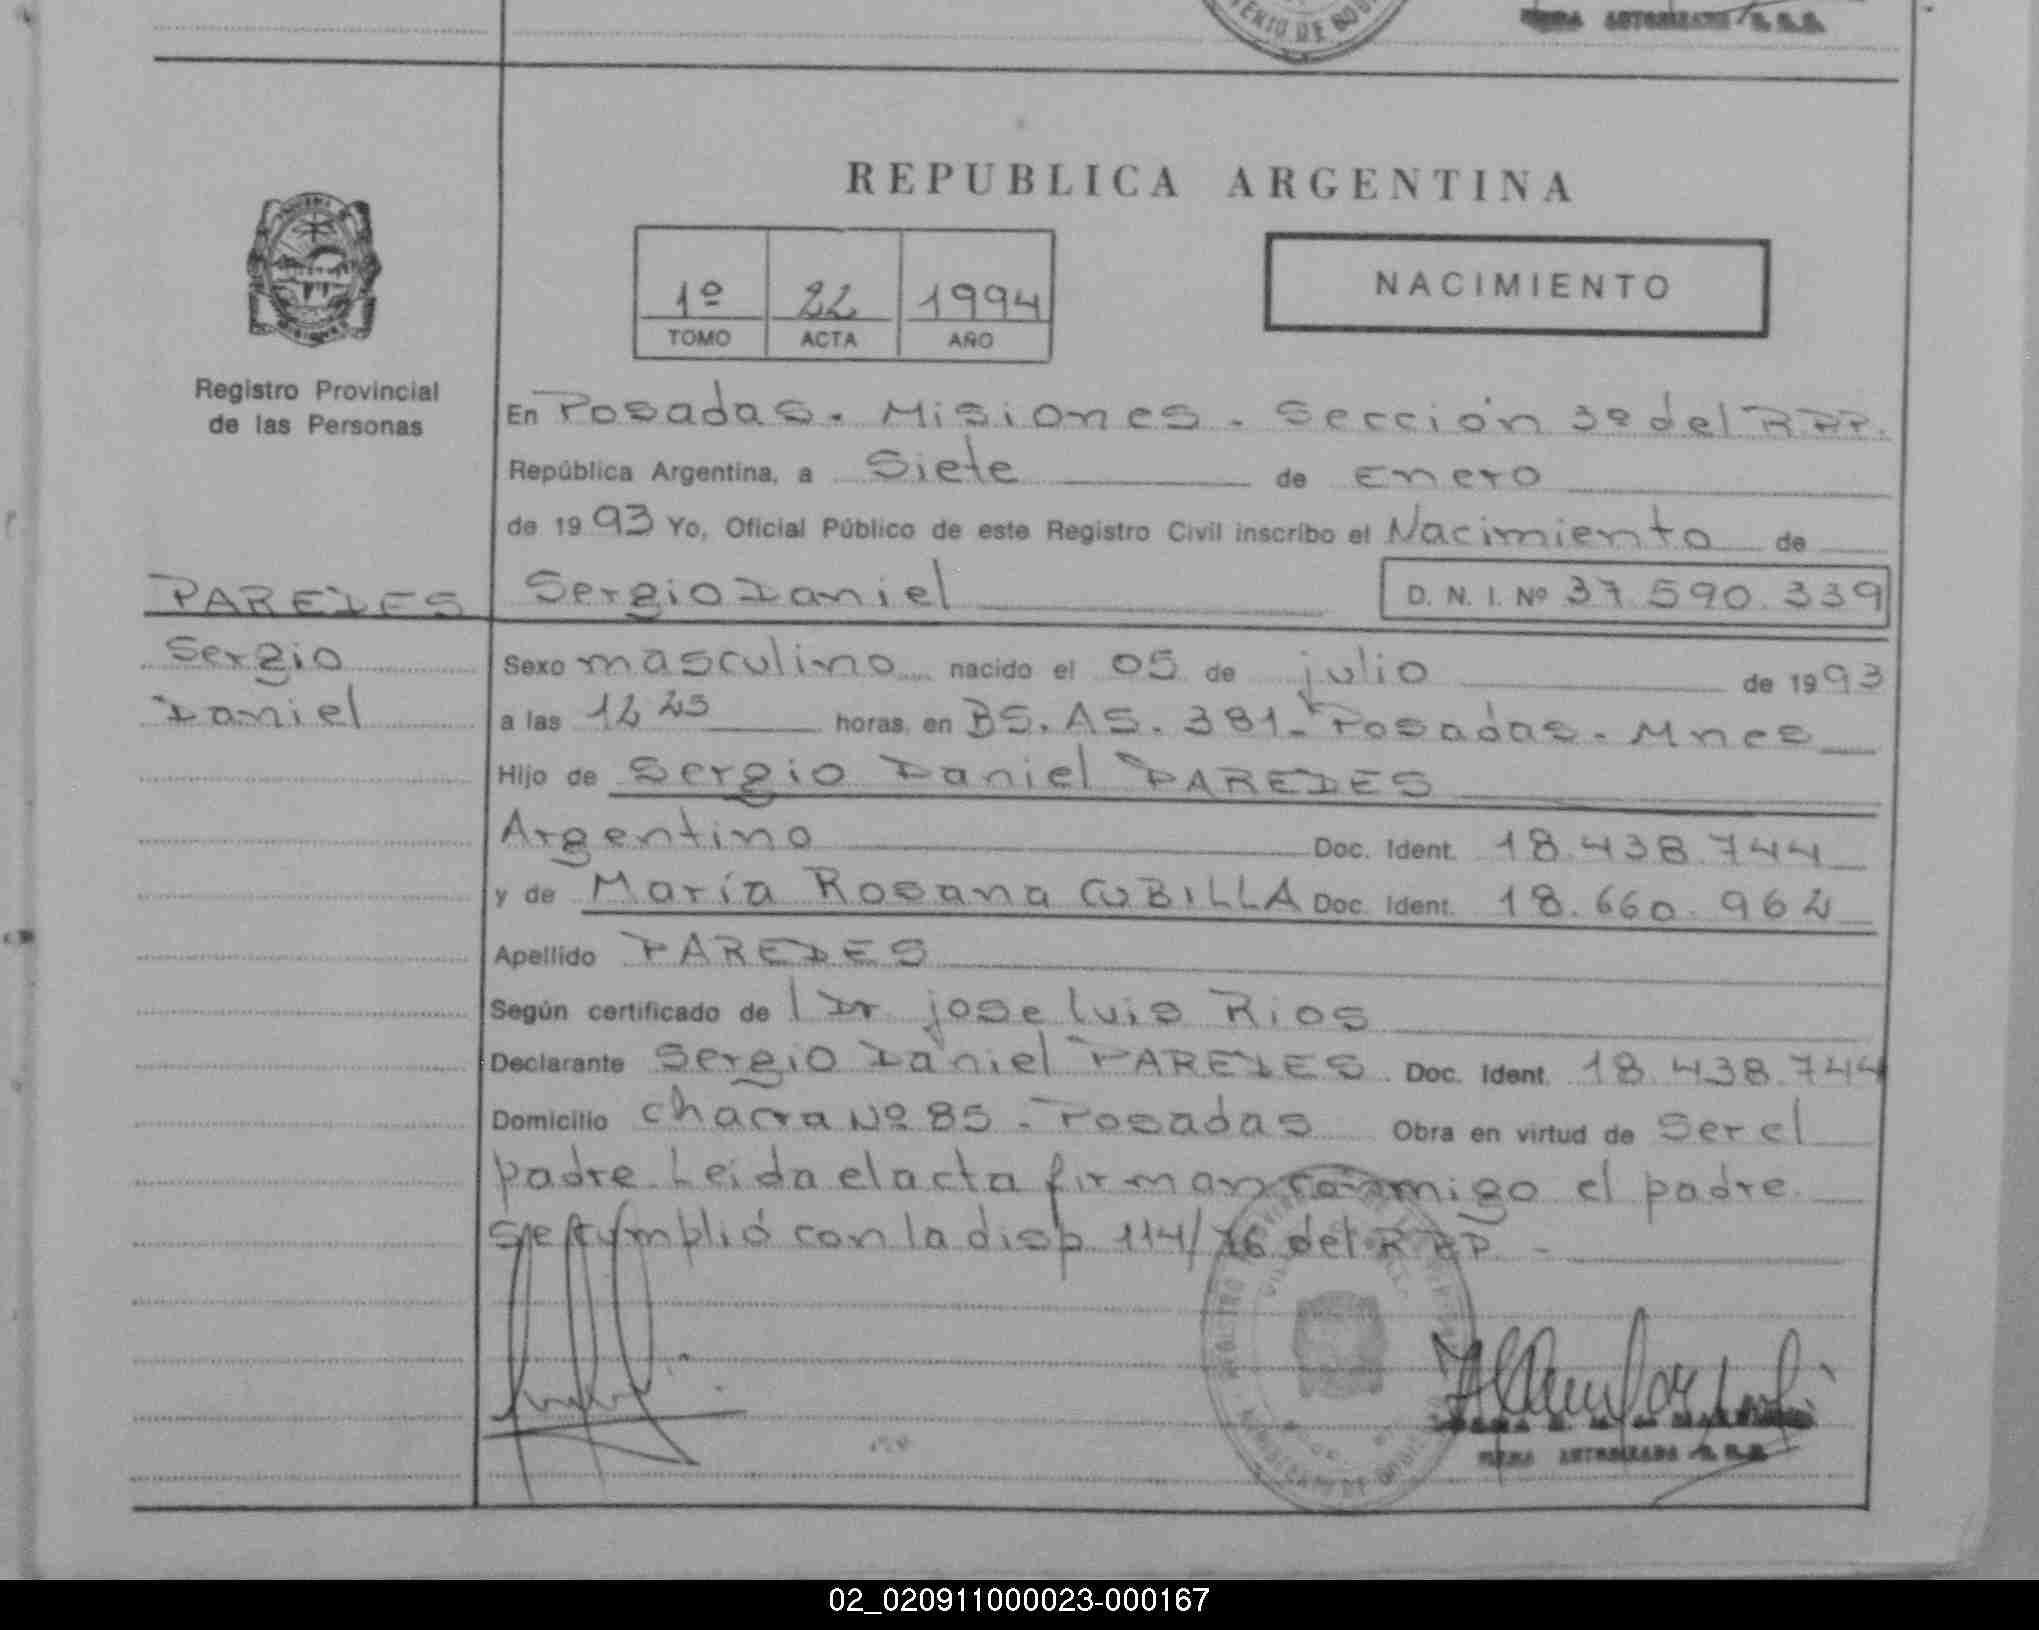 REPUBLICA ARGENTINA
1º 22 1994
TOMO ACTA AÑO
NACIMIENTO
Registro Provincial
de las Personas
En Posadas. Misiones. Sección 3º del RPP.
República Argentina, a Siete de Enero
de 1993 Yo, Oficial Público de este Registro Civil inscribo el Nacimiento de
PAREDES Sergio Daniel D. N. I. Nº 37.590.339
Sergio
Daniel
Sexo masculino nacido el 05 de julio de 1993
a las 12 25 horas, en BS. AS. 381. Posadas. Mnes
Hijo de Sergio Daniel PAREDES
Argentino Doc. Ident. 18.438.744
y de María Rosana CUBILLA Doc. Ident. 18.660.962
Apellido PAREDES
Según certificado de l Dr jose luis Rios
Declarante Sergio Daniel PAREDES. Doc. Ident. 18.438.744
Domicilio chacra Nº 85 - Posadas Obra en virtud de Ser el
padre. Leída el acta firman conmigo el padre.
Se cumplió con la disp 114/76 del R PP. -
FIRMA AUTORIZADA
02_020911000023-000167